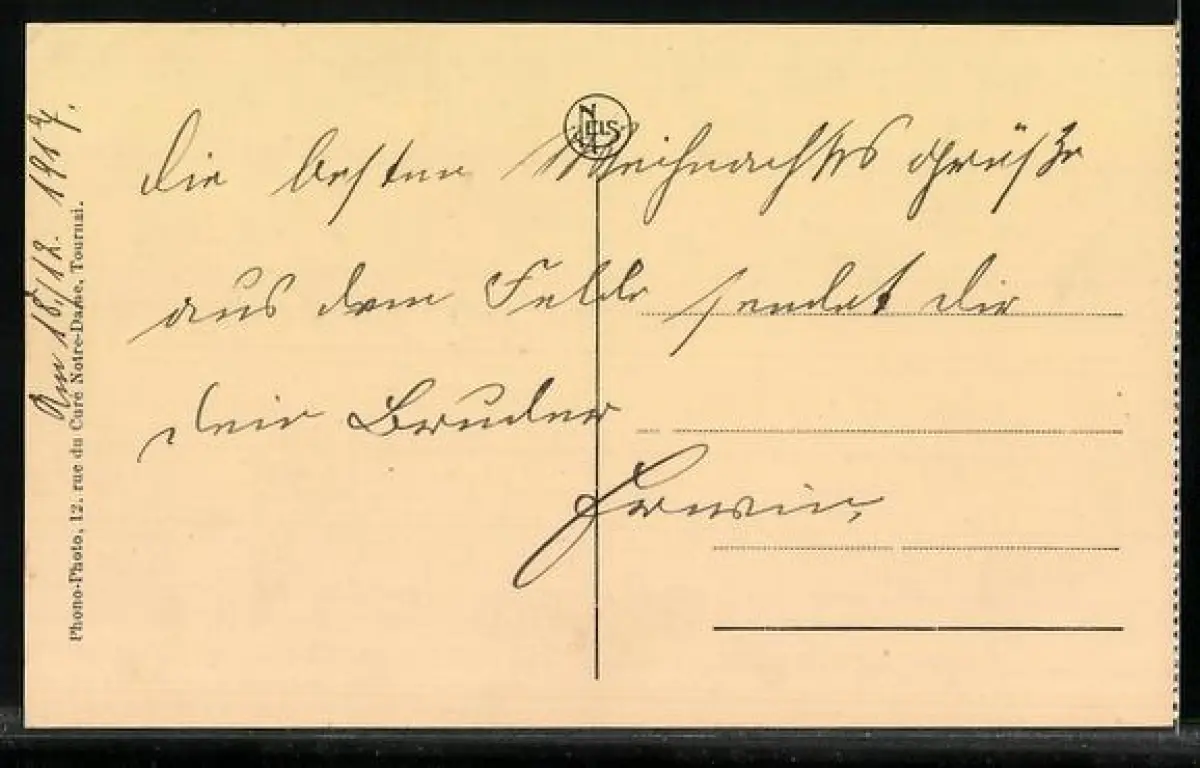 Die besten Weihnachts Grüße
aus dem Felde sendet dir
dein Bruder
Erwin.
Am 18/12. 1917.
Phono-Photo, 12, rue du Curé Notre-Dame, Tournai.
NELS